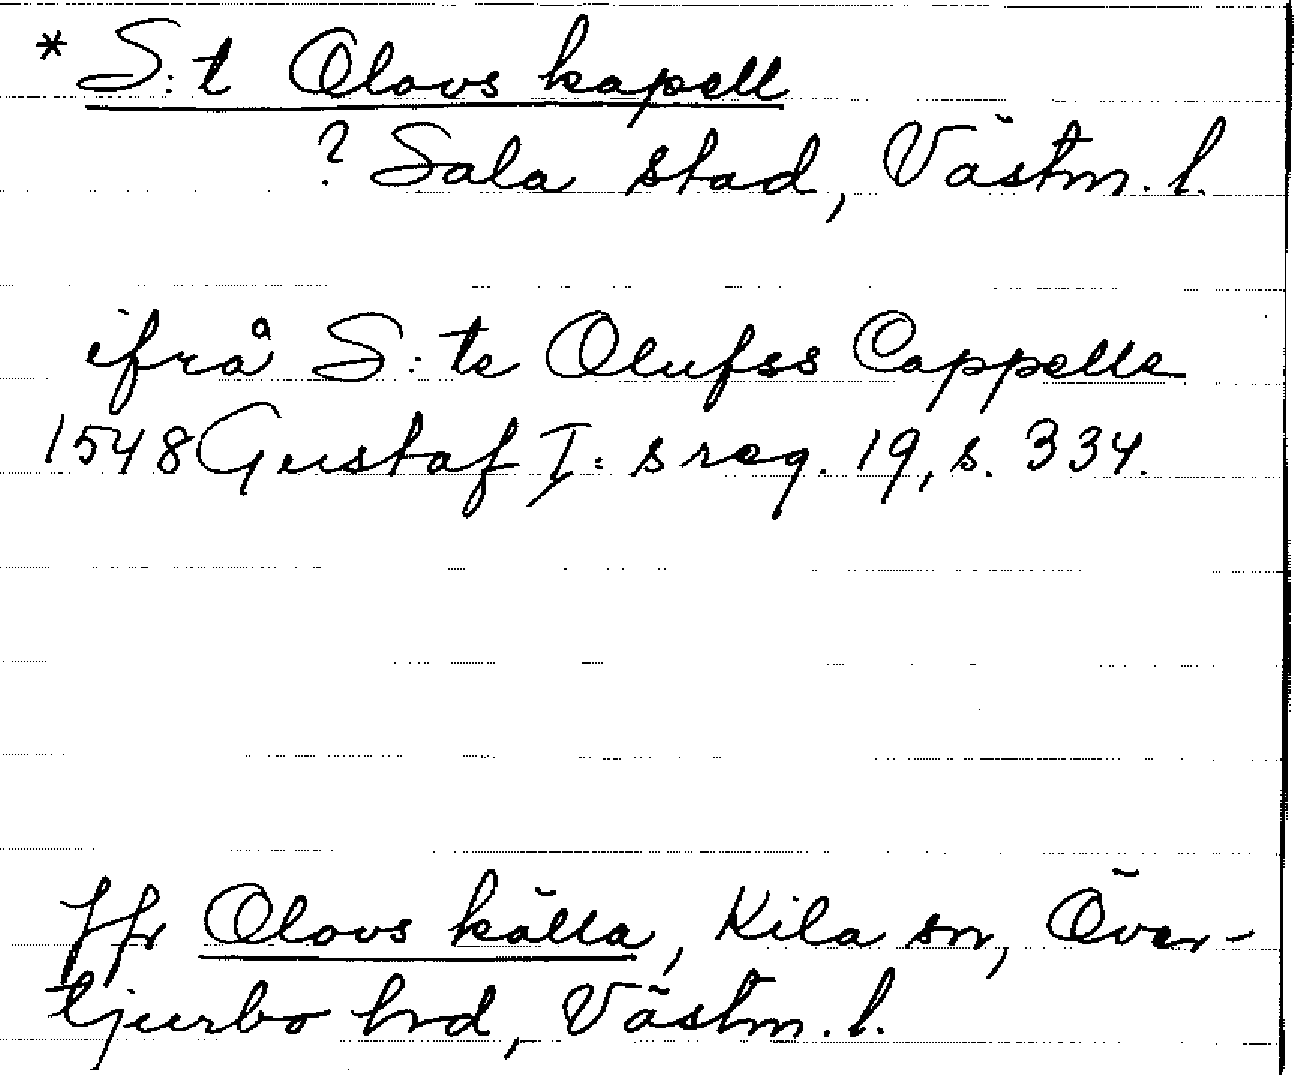 * S:t Olovs kapell
? Sala stad, Västm. l.
ifrå S:te Olufss Cappelle
1548 Gustaf I:s reg. 19, s. 334.
Jfr Olovs källa, Kila sn, Över-
tjurbo hrd, Västm. l.